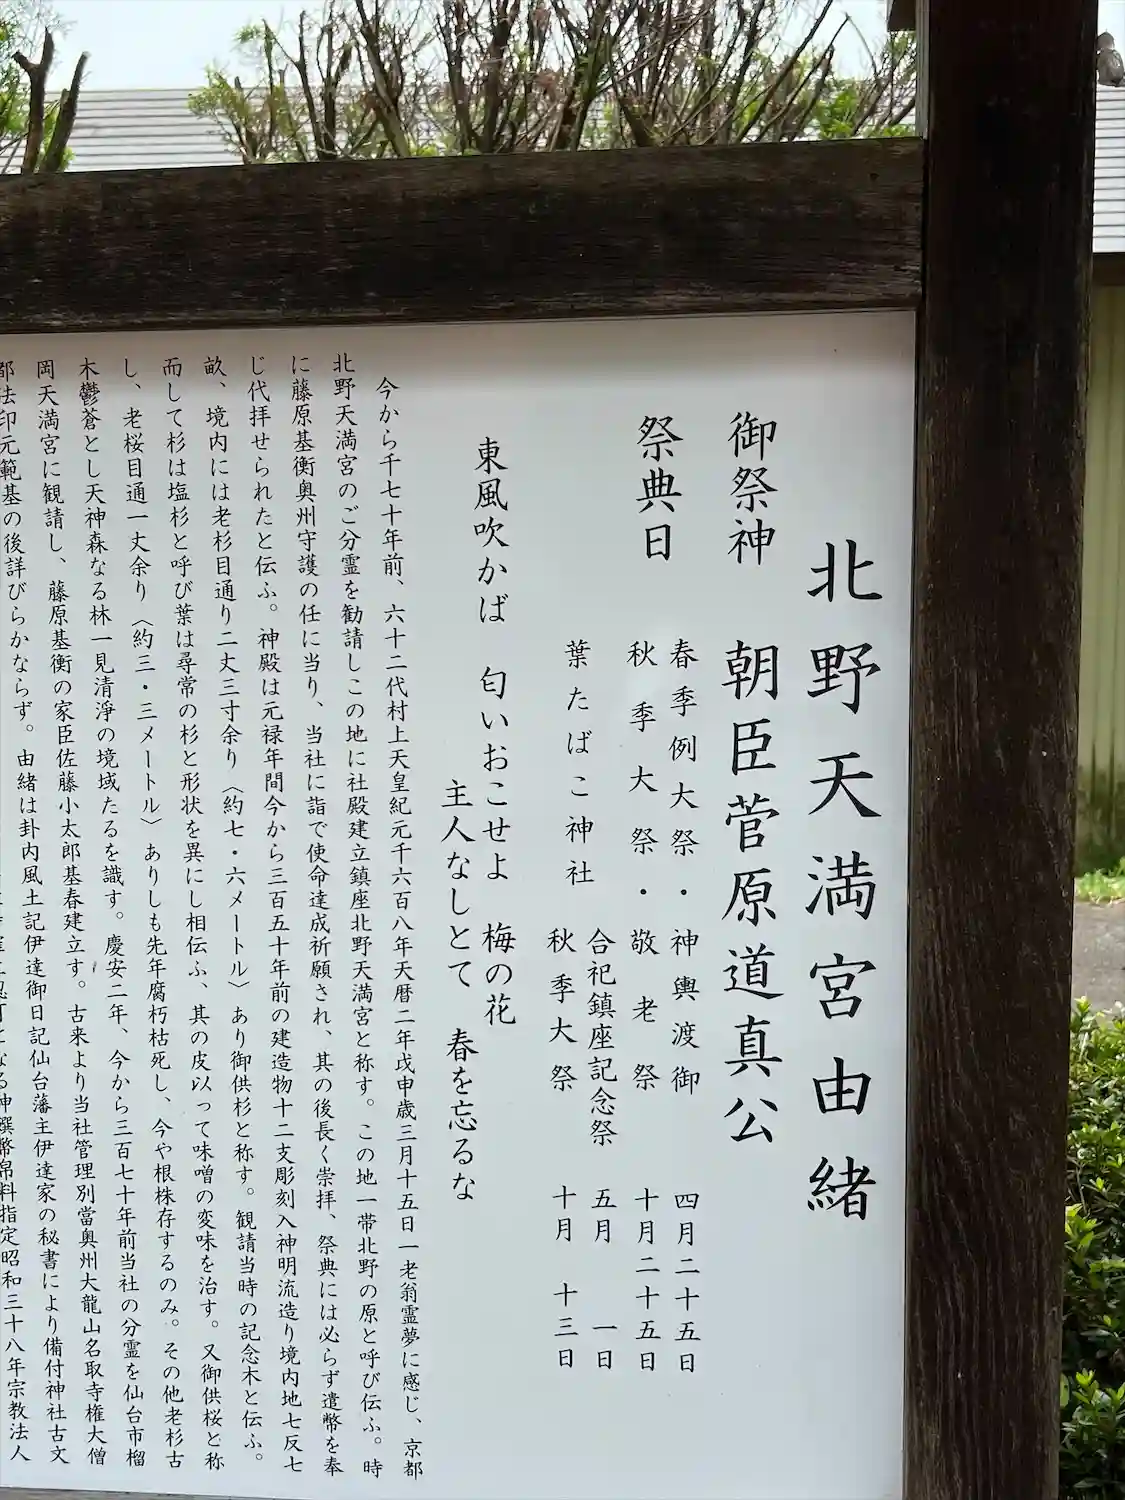 北野天満宮由緒
御祭神　朝臣菅原道真公
祭典日　春季例大祭・神輿渡御　四月二十五日
秋季大祭・敬老祭　十月二十五日
葉たばこ神社　合祀鎮座記念祭　五月　一日
秋季大祭　十月　十三日
東風吹かば　匂いおこせよ　梅の花
主人なしとて　春を忘るな
今から千七十年前、六十二代村上天皇紀元千六百八年天暦二年戊申歳三月十五日一老翁霊夢に感じ、京都
北野天満宮のご分霊を勧請しこの地に社殿建立鎮座北野天満宮と称す。この地一帯北野の原と呼び伝ふ。時
に藤原基衡奥州守護の任に当り、当社に詣で使命達成祈願され、其の後長く崇拝、祭典には必らず遣幣を奉
じ代拝せられたと伝ふ。神殿は元禄年間今から三百五十年前の建造物十二支彫刻入神明流造り境内地七反七
畝、境内には老杉目通り二丈三寸余り〈約七・六メートル〉あり御供杉と称す。観請当時の記念木と伝ふ。
而して杉は塩杉と呼び葉は尋常の杉と形状を異にし相伝ふ、其の皮以って味噌の変味を治す。又御供桜と称
し、老桜目通一丈余り〈約三・三メートル〉ありしも先年腐朽枯死し、今や根株存するのみ。その他老杉古
木鬱蒼とし天神森なる林一見清淨の境域たるを識す。慶安二年、今から三百七十年前当社の分霊を仙台市榴
岡天満宮に観請し、藤原基衡の家臣佐藤小太郎基春建立す。古来より当社管理別當奥州大龍山名取寺権大僧
都法印元範基の後詳びらかならず。由緒は卦内風土記伊達御日記仙台藩主伊達家の秘書により備付神社古文
なる神饌幣帛料指定昭和三十八年宗教法人